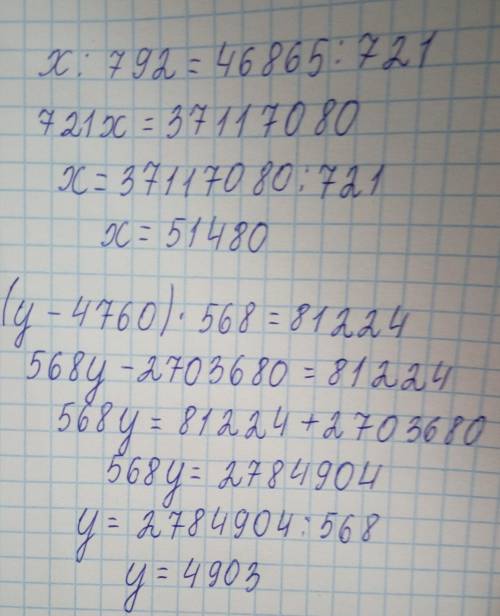 x : 792 = 46865 : 721
721x = 37117080
x = 37117080 : 721
x = 51480
(y - 4760) · 568 = 81224
568y - 2703680 = 81224
568y = 81224 + 2703680
568y = 2784904
y = 2784904 : 568
y = 4903